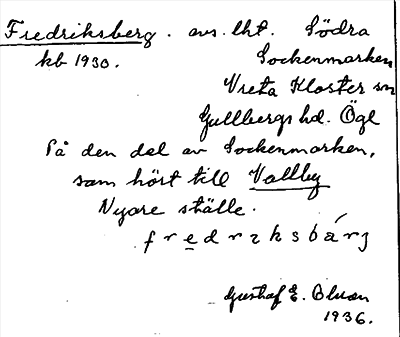 Fredriksberg. avs. lht. Södra
kb 1930. Sockenmarken
Vreta Kloster sn
Gullbergs hd. Ögl
På den del av Sockenmarken,
som hört till Vallby
Nyare ställe.
fredrɩksbárj
Gustaf E. Olson
1936.